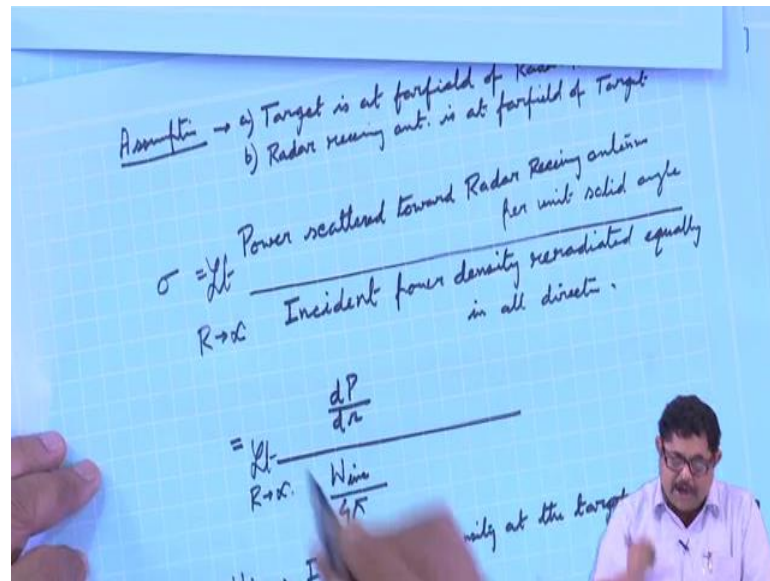 Assumptin → a) Target is at farfield of Radar
b) Radar receiving ant. is at farfield of Target
σ = Lt Power scattered toward Radar Receiving antenna
per unit solid angle
R→∝ Incident power density reradiated equally
in all directn.
= Lt dP
dΩ
R→∝. Winc
4π
at the target